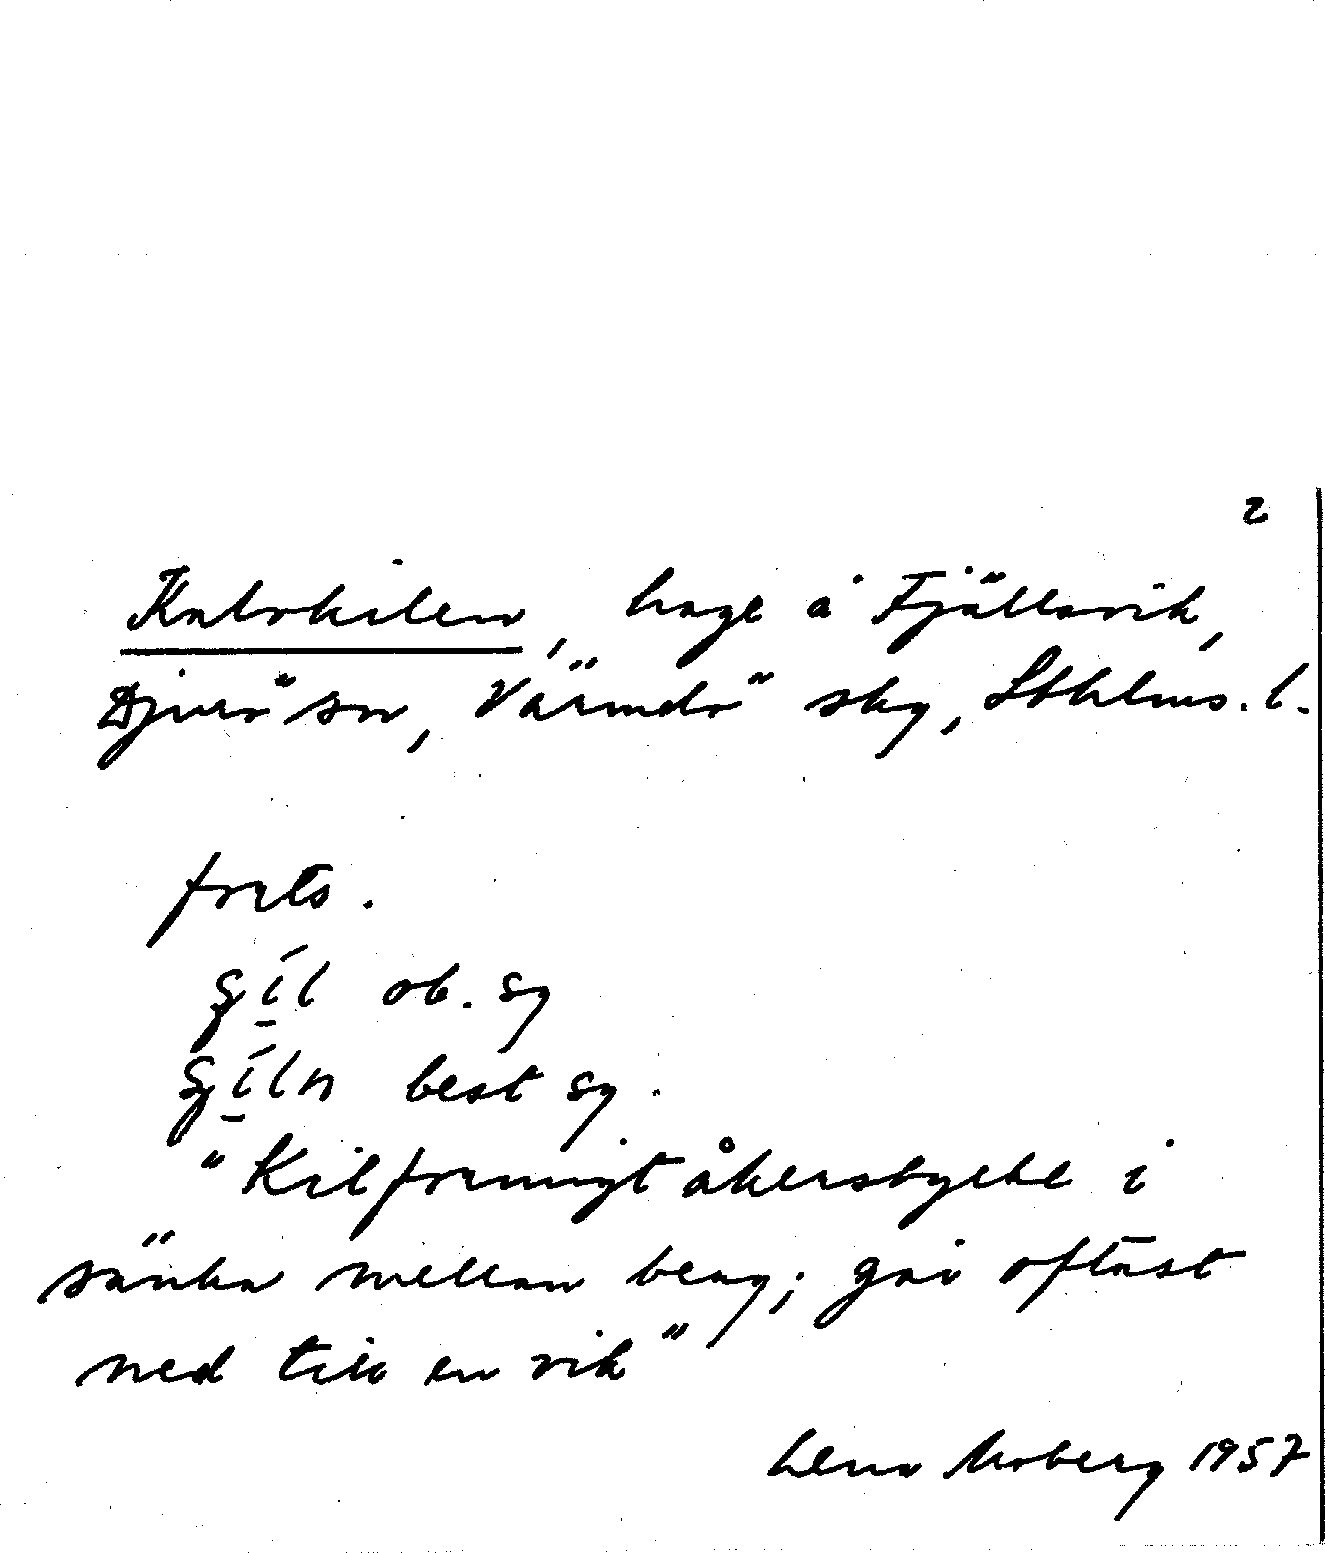 2
Kalvkilen, hage å Fjällsvik,
Djurö sn, Värmdö skg, Sthlms. l.
forts.
ob. sg
best sg.
"Kilformigt åkerstycke i
sänka mellan berg; går oftast
ned till en vik"
Lena Moberg 1957